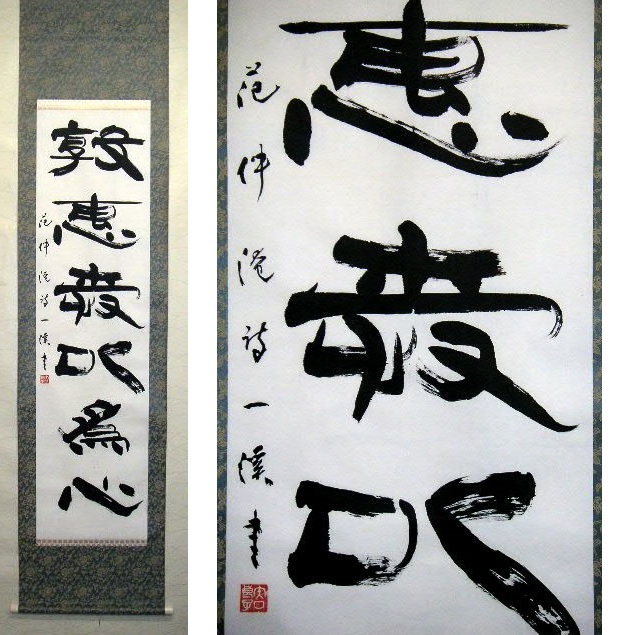 敦惠以為心
范仲淹詩一溪書
惠以
范仲淹詩一溪書